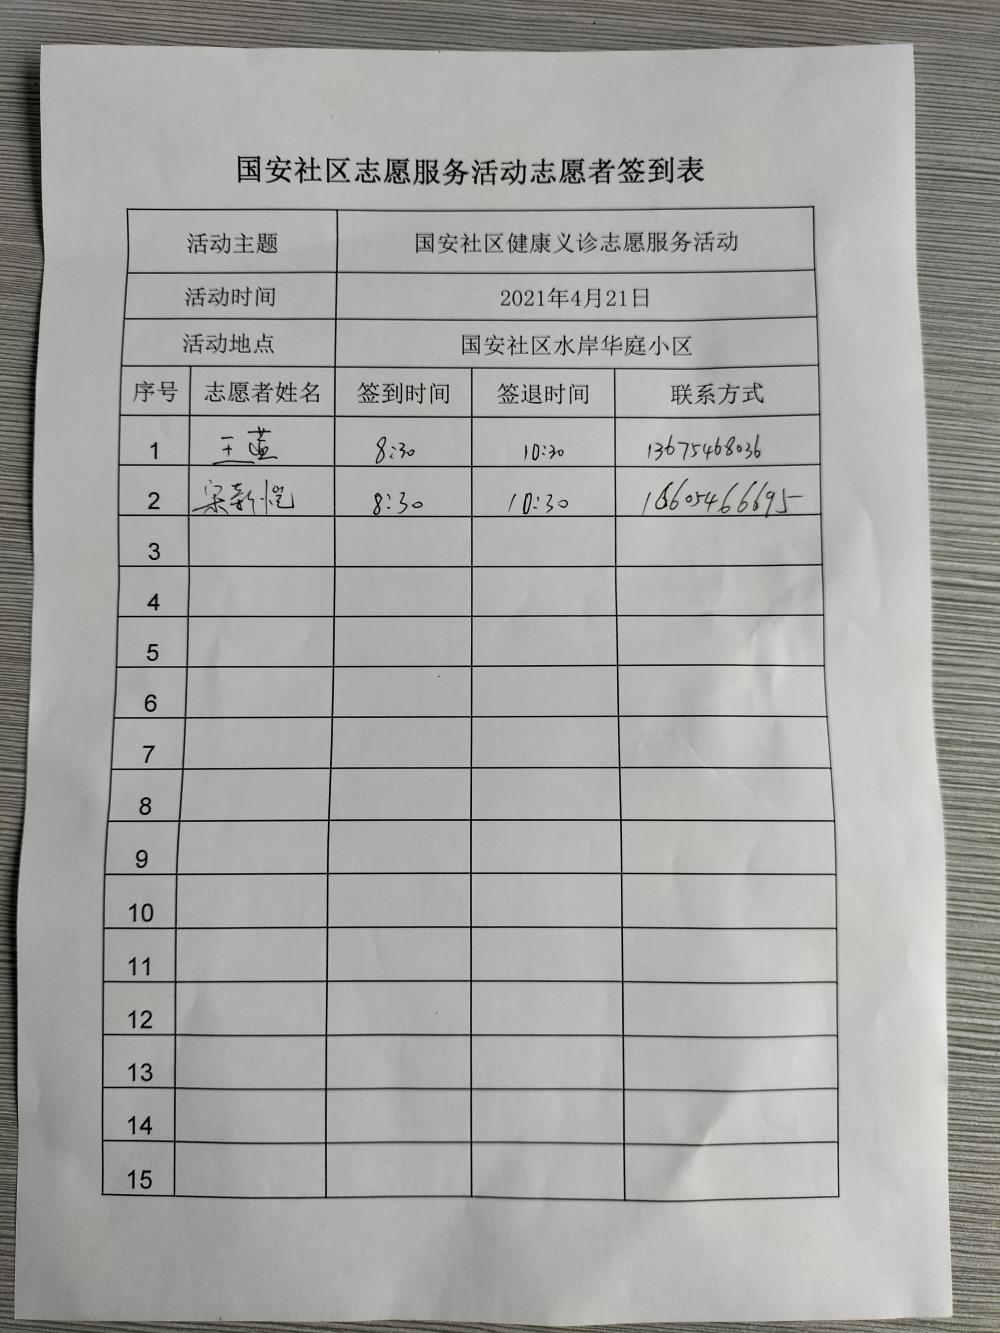 国安社区志愿服务活动志愿者签到表
活动主题 国安社区健康义诊志愿服务活动
活动时间 2021年4月21日
活动地点 国安社区水岸华庭小区
序号 志愿者姓名 签到时间 签退时间 联系方式
1 王 8:30 10:30 13675468036
2 宋新恺 8:30 10:30 16605466695
3
4
5
6
7
8
9
10
11
12
13
14
15